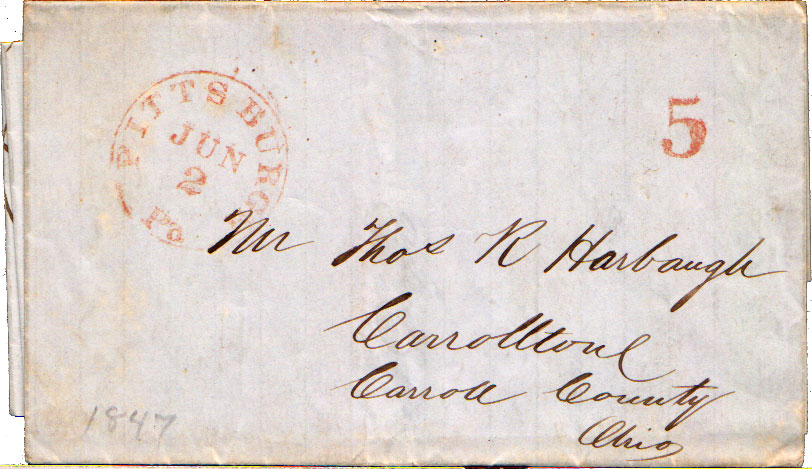 PITTSBURG
JUN
2
Pa
5
Mr Thos R Harbaugh
Carrollton
Carroll County
Ohio
1847